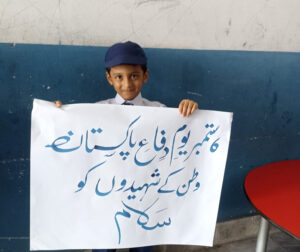 6 ستمبر یومِ دفاعِ پاکستان
وطن کے شہیدوں کو
سلام